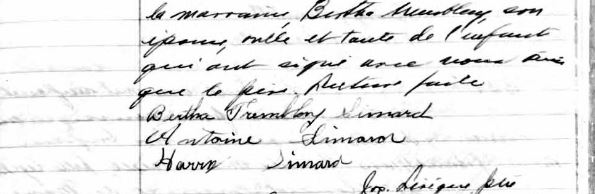 la marraine Bertha Tremblay son
épouse, oncle et tante de l'enfant
qui ont signé avec nous ainsi
que le père. Lecture faite
Bertha Tremblay Simard
Antoine Simard
Harry Simard
Jos. Lévêque ptre